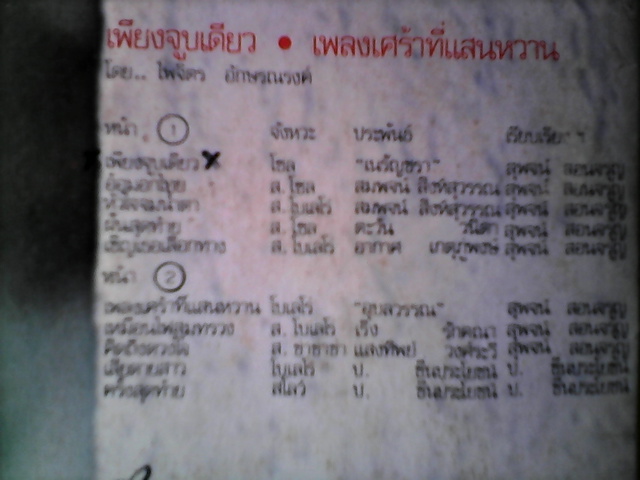 เพียงจูบเดียว • เพลงเศร้าที่แสนหวาน
โดย.. ไพจิตร อักษรณรงค์
หน้า 1 จังหวะ ประพันธ์
เพียงจูบเดียว โซล "เนรัญชรา" สุพจน์ สอนจรูญ
ส. โซล สมพจน์ สิงห์สุวรรณ สุพจน์ สอนจรูญ
หัวใจจมน้ำตา ส. โบเลโร่ สมพจน์ สิงห์สุวรรณ สุพจน์ สอนจรูญ
ฝันสุดท้าย ส. โซล ตะวัน วนิดา สุพจน์ สอนจรูญ
เชิญเธอเลือกทาง ส. โบเลโร่ อากาศ สุพจน์ สอนจรูญ
หน้า 2
เพลงเศร้าที่แสนหวาน โบเลโร่ "อุบลวรรณ" สุพจน์ สอนจรูญ
เหมือนไฟสุมทรวง ส. โบเลโร่ เริง รักตณา สุพจน์ สอนจรูญ
ส. ชาชาช่า แสงทิพย์ สุพจน์ สอนจรูญ
เสียดายสาว โบเลโร่ ป. ชื่นประโยชน์ ป. ชื่นประโยชน์
ครั้งสุดท้าย สโลว์ ป. ชื่นประโยชน์ ป. ชื่นประโยชน์